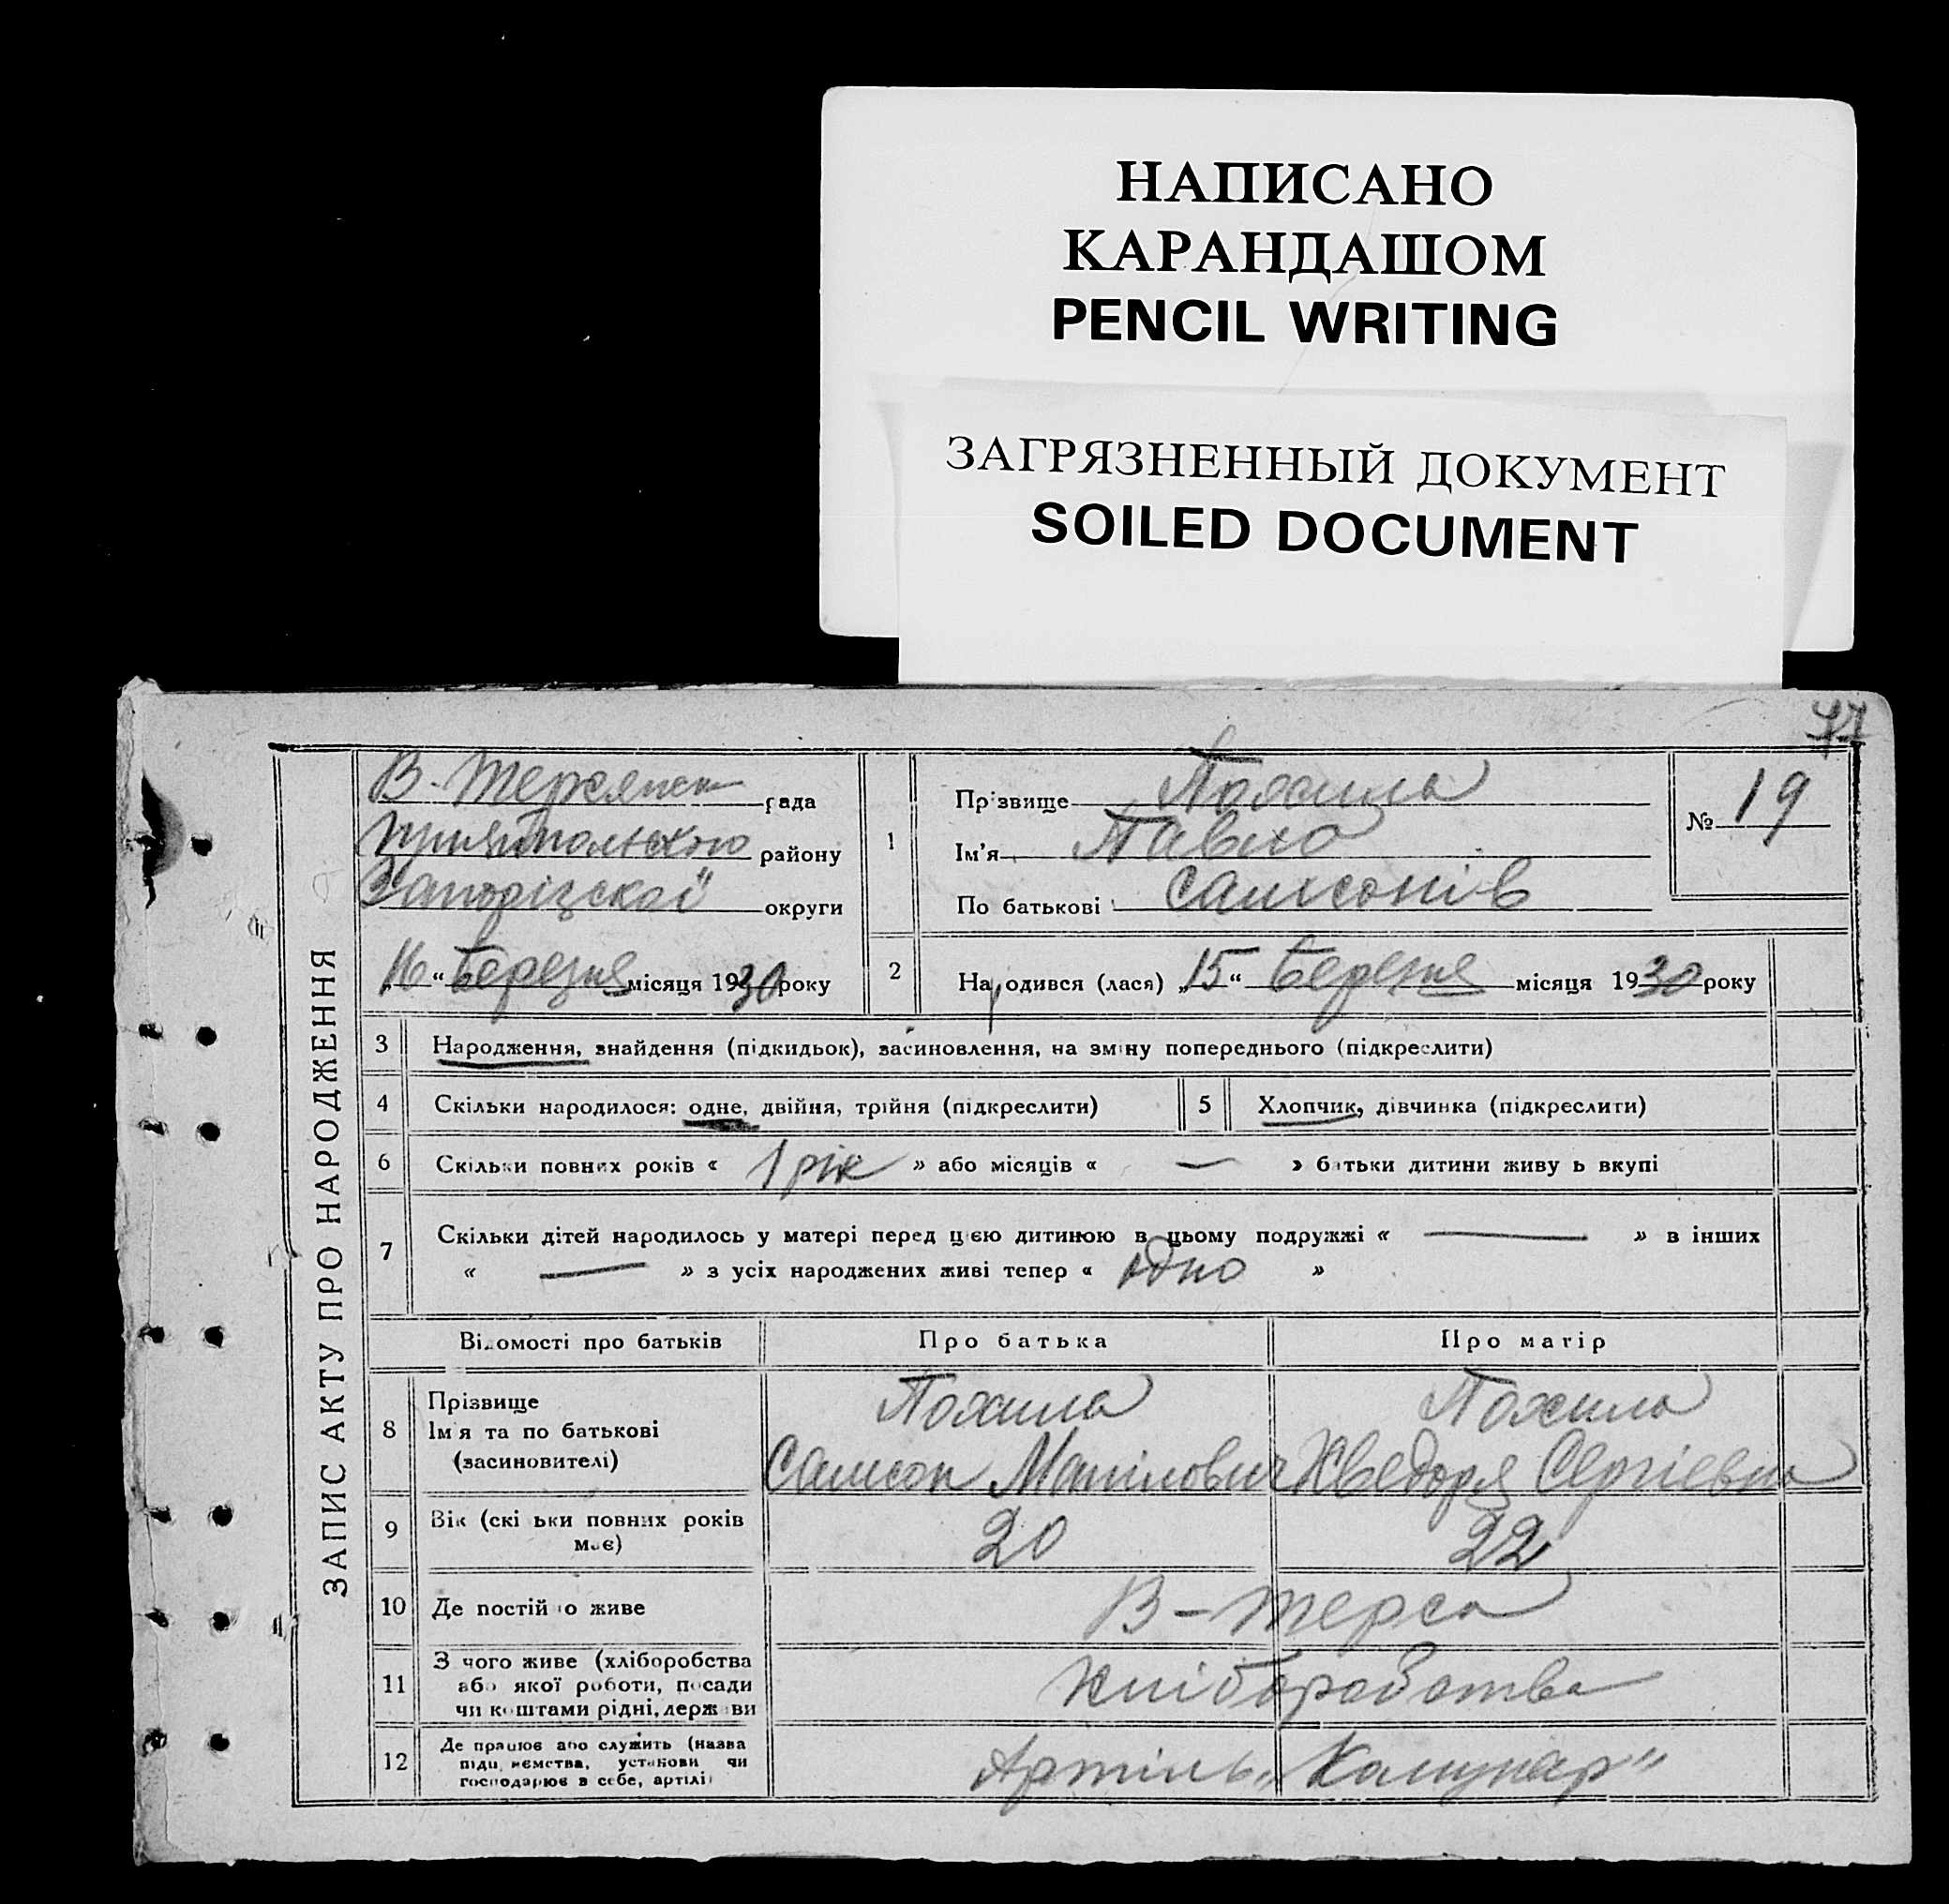 НАПИСАНО
КАРАНДАШОМ
PENCIL WRITING
ЗАГРЯЗНЕННЫЙ ДОКУМЕНТ
SOILED DOCUMENT
77
ЗАПИС АКТУ ПРО НАРОДЖЕННЯ
В-Терсянск рада
району
Запорізскої округи
„16“ Березня місяця 1930 року
1 Прізвище Похила
Ім'я Павло
По батькові Самсонів
№ 19
2 Народився (лася) „15“ Березня місяця 1930 року
3 Народження, знайдення (підкидьок), засиновлення, на зміну попереднього (підкреслити)
4 Скільки народилося: одне, двійня, трійня (підкреслити) 5 Хлопчик, дівчинка (підкреслити)
6 Скільки повних років « 1 рік » або місяців « — » батьки дитини живуть вкупі
7 Скільки дітей народилось у матері перед цією дитиною в цьому подружжі « — » в інших
« — » з усіх народжених живі тепер « одно »
Відомості про батьків Про батька Про матір
8 Прізвище
Ім'я та по батькові
(засиновителі)
Похила
Самсон
Похила
Хведоря Сергіевна
9 Вік (скільки повних років
має)
20 22
10 Де постійно живе В-Терса
11 З чого живе (хліборобства
або якої роботи, посади
чи коштами рідні, держави
Хліборобства
12 Де працює або служить (назва
підприємства, установи чи
господарює в себе, артілі)
Артіль „Комунар“